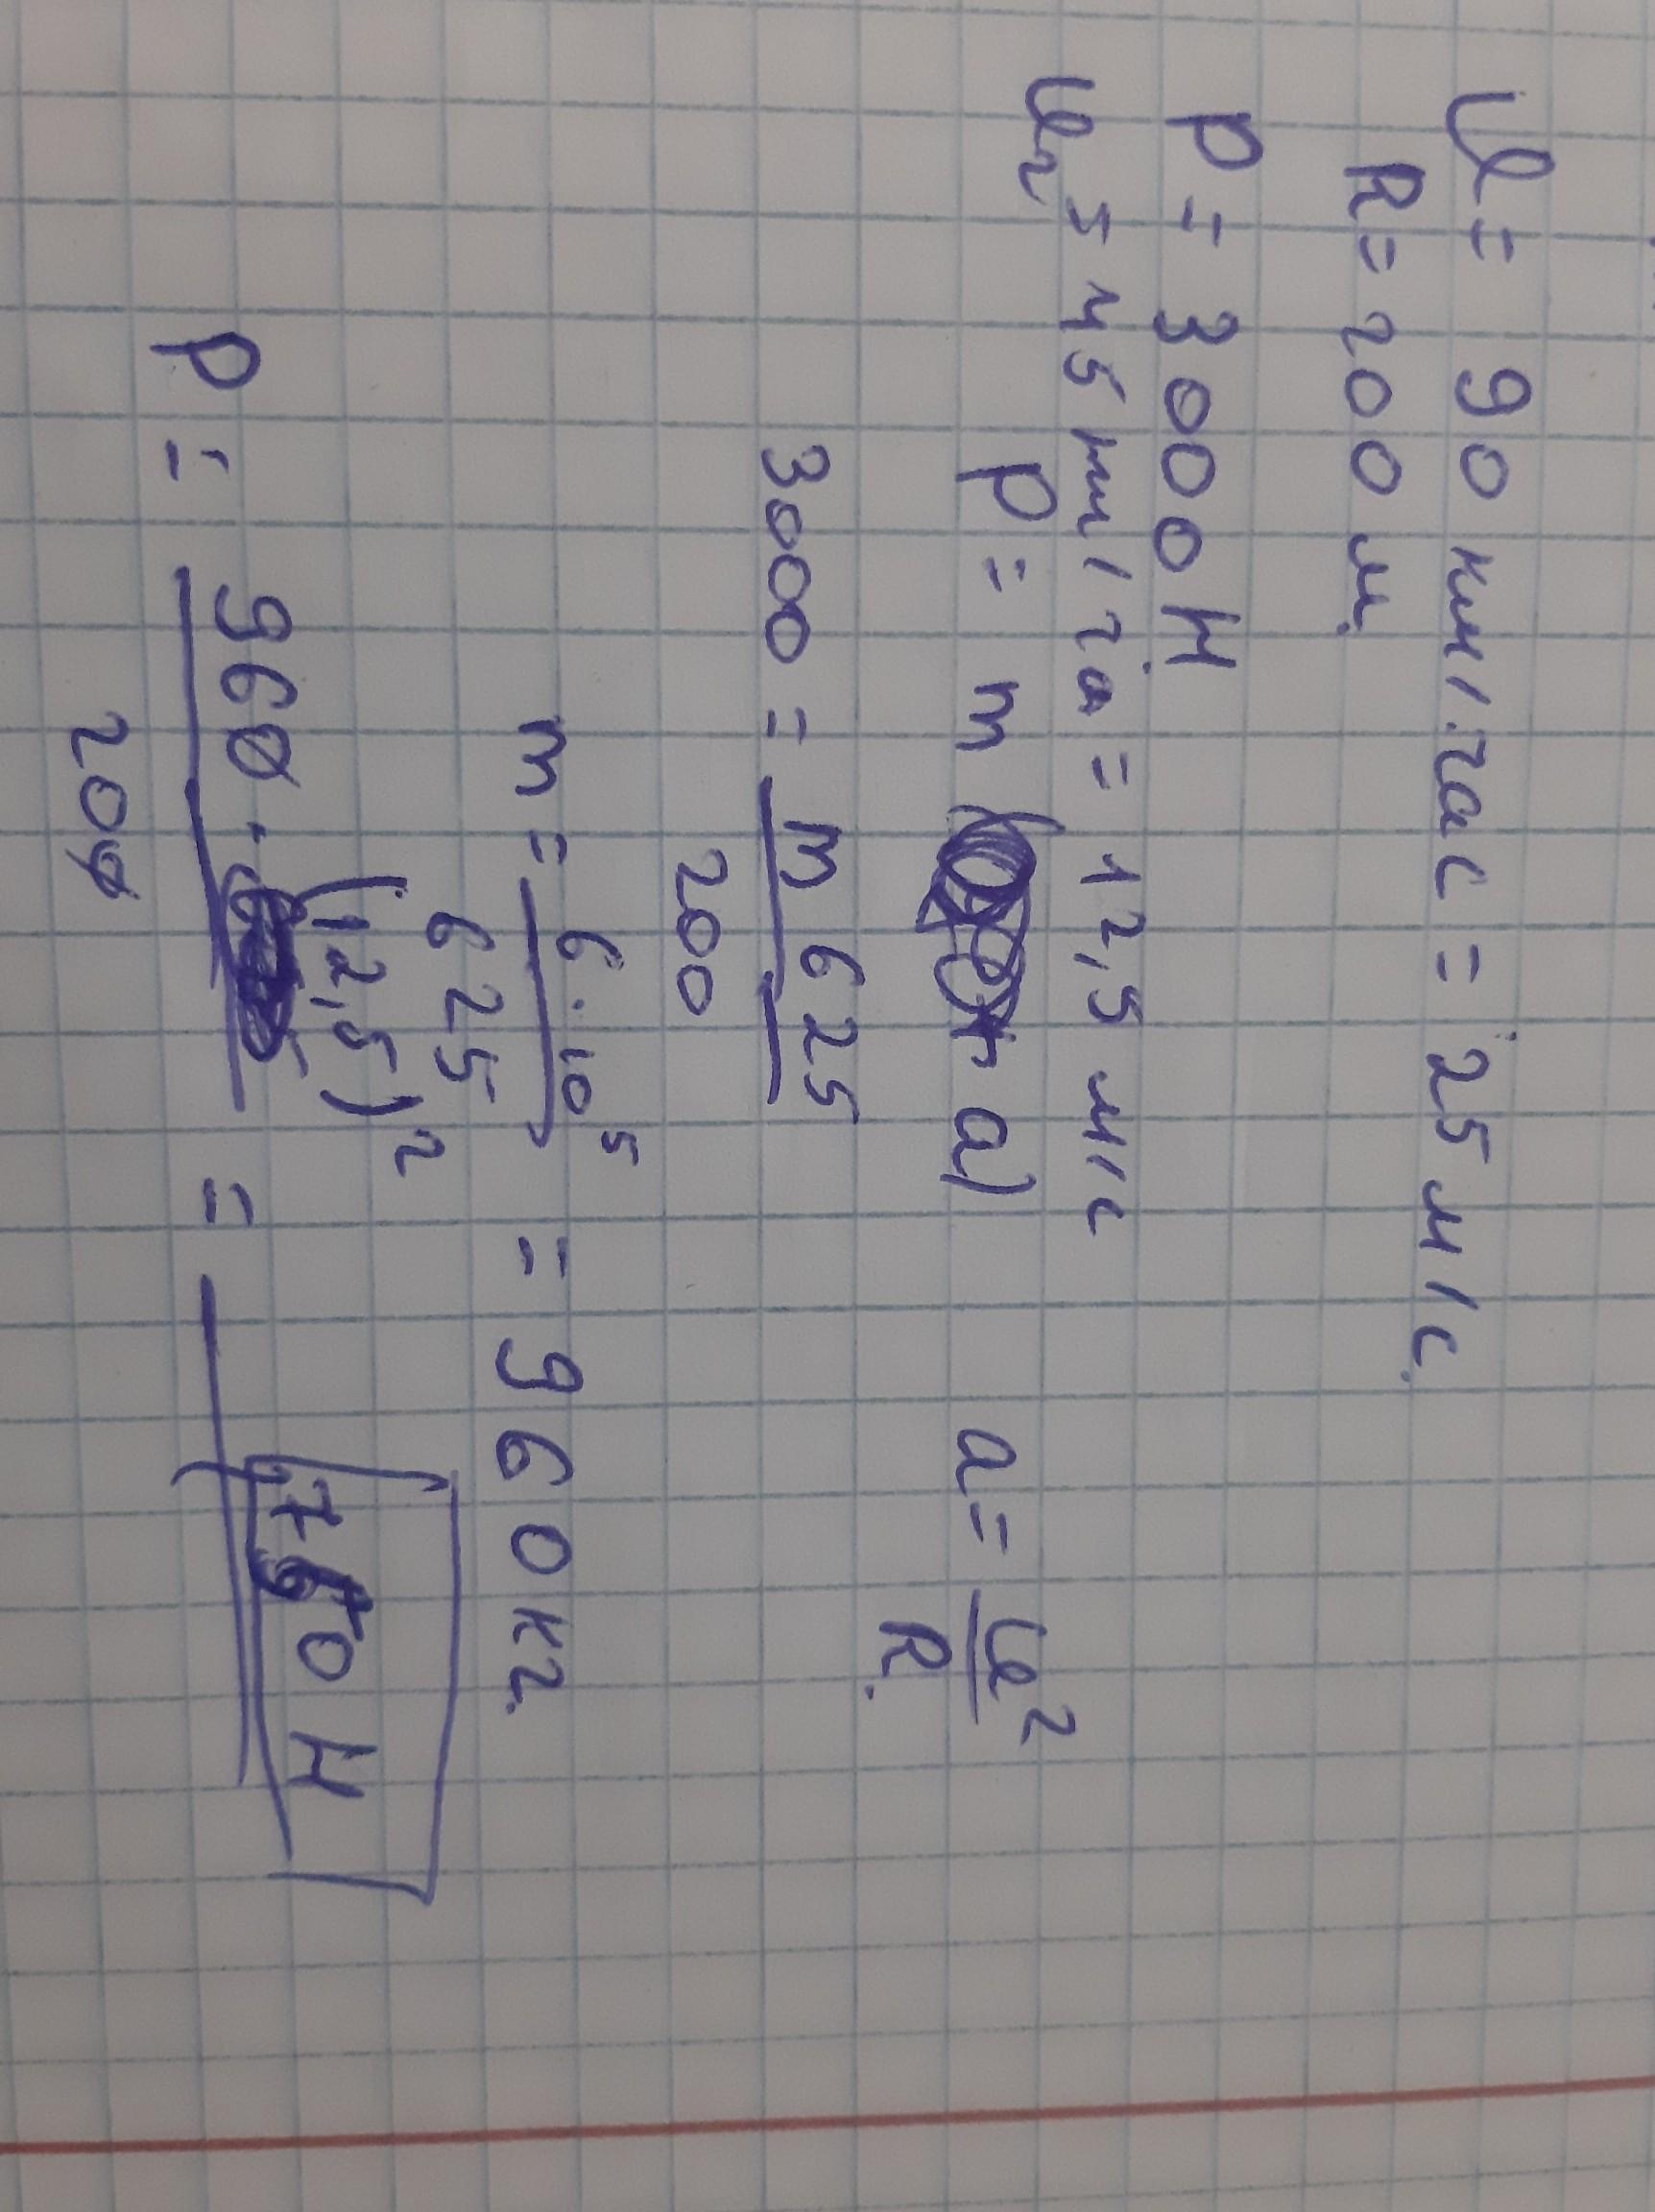 υ = 90 км/час = 25 м/с.
R = 200 м.
P = 3000 Н
υ₂ = 45 км/ча = 12,5 м/с
P = m ( a) a = υ²/R.
3000 = m 625/200
m = 6·10⁵/625 = 960 кг.
P = 960·(12,5)²/200 = 750 Н